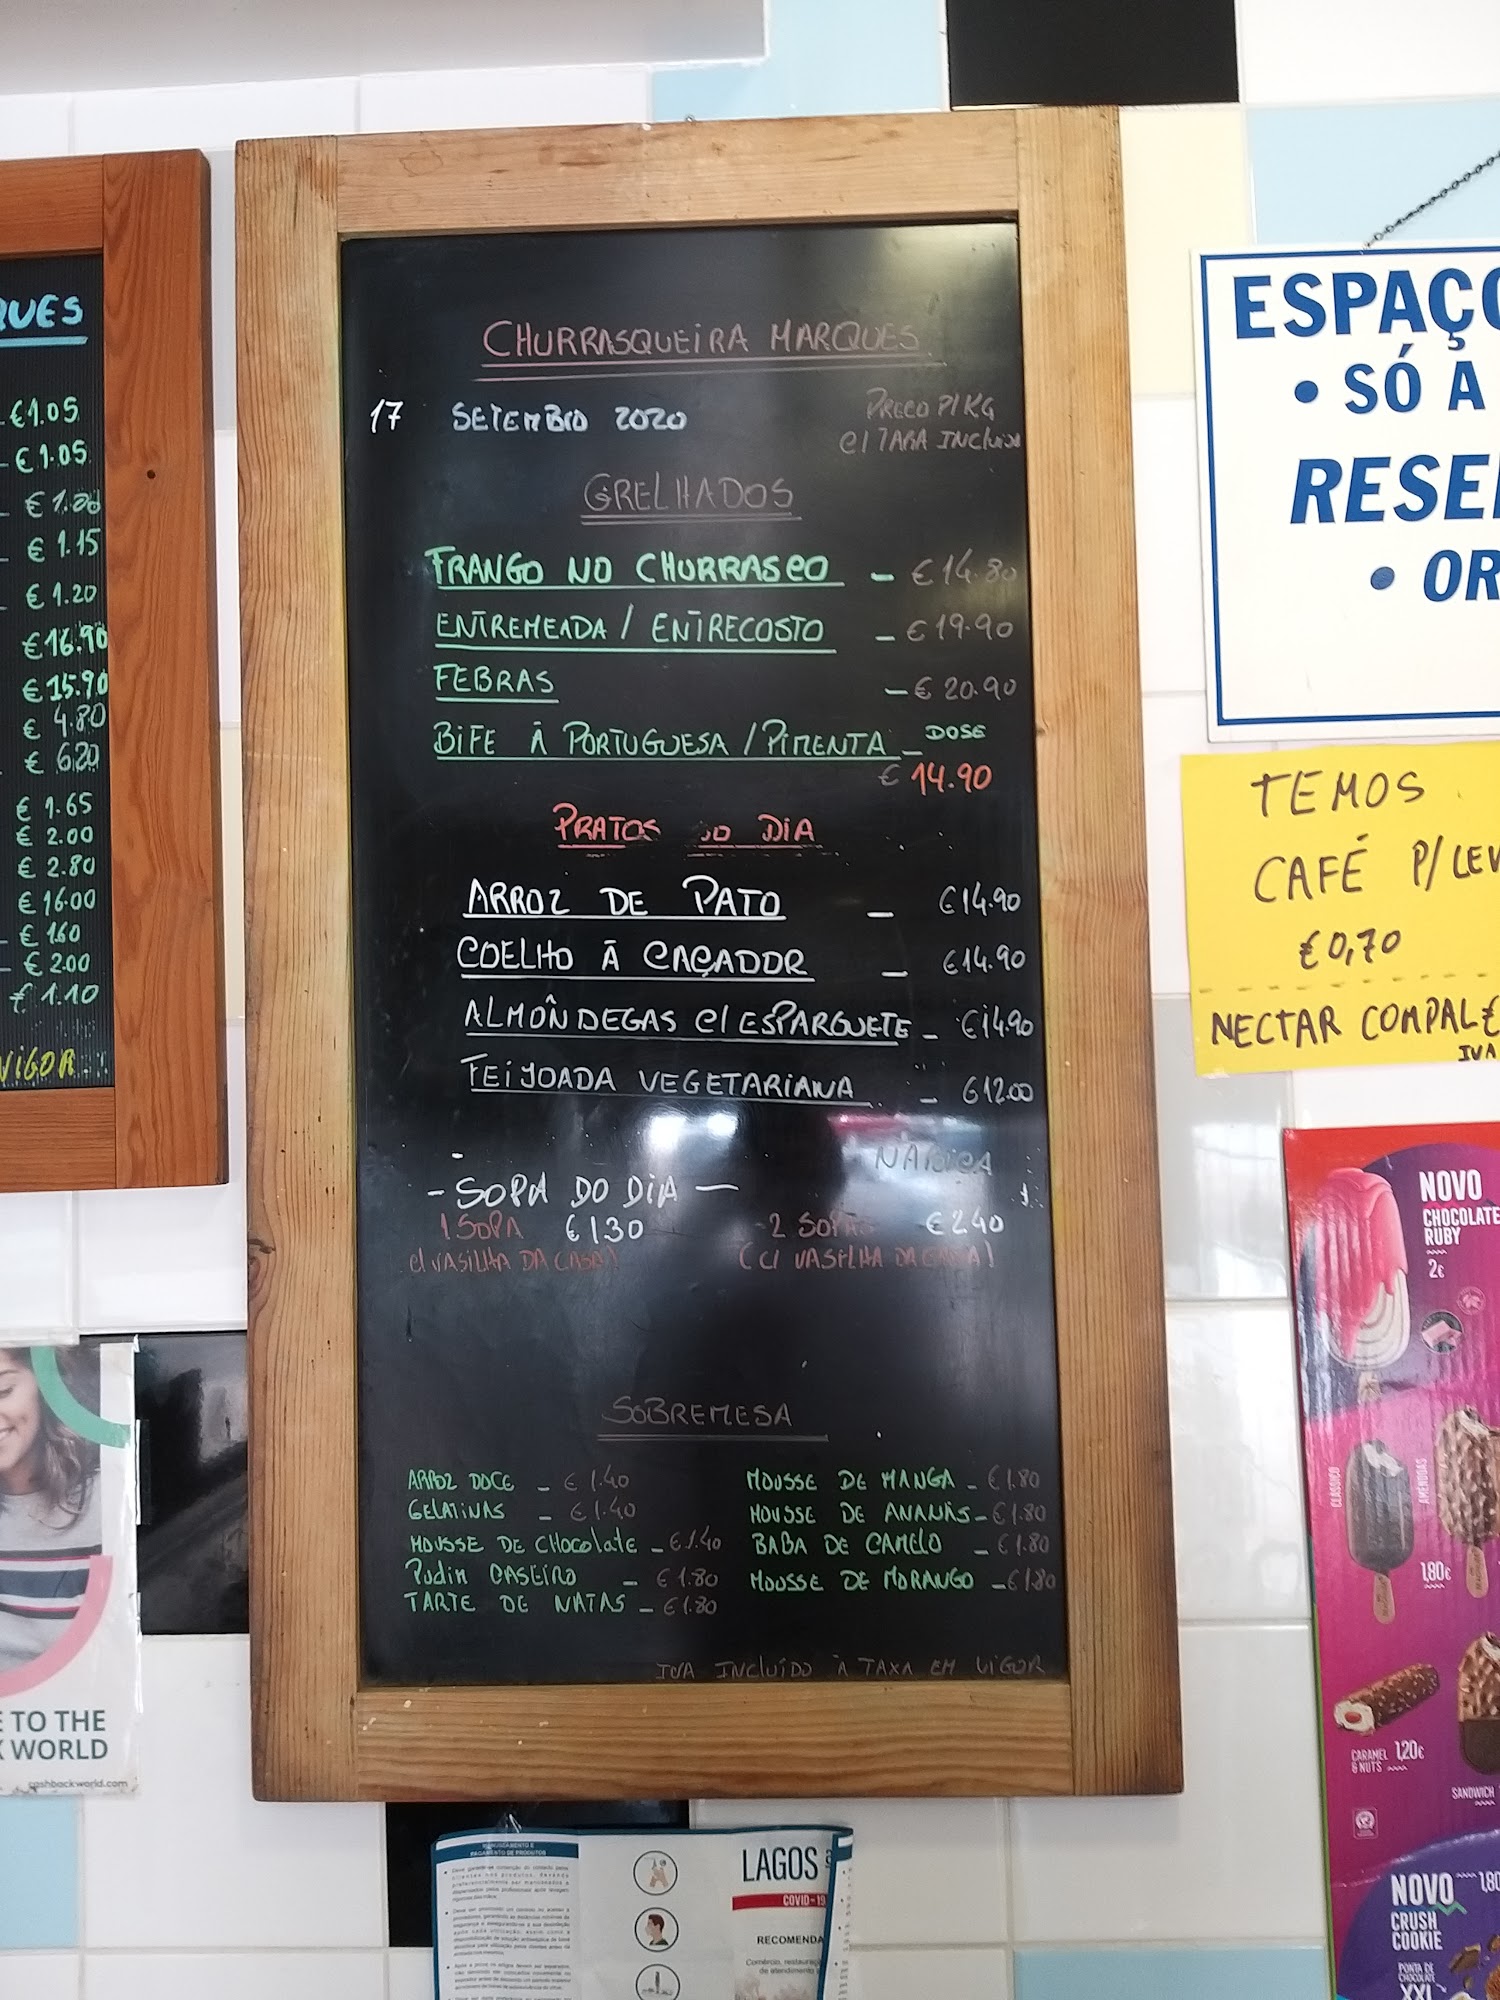 QUES
€1.05
€1.05
€1.15
€1.20
€16.90
€15.90
€4.80
€6.20
€1.65
€2.00
€2.80
€16.00
€1.60
€2.00
€1.10
VIGOR
CHURRASQUEIRA MARQUES
17 SETEMBRO 2020
PREÇO P/KG
C/ TARA INCLUISA
GRELHADOS
FRANGO NO CHURRASCO - €14.80
ENTREMEADA / ENTRECOSTO - €19.90
FEBRAS - €20.90
BIFE À PORTUGUESA / PIMENTA - DOSE
€14.90
PRATOS DO DIA
ARROZ DE PATO - €14.90
COELHO À CAÇADOR - €14.90
ALMÔNDEGAS C/ ESPARGUETE - €14.90
FEIJOADA VEGETARIANA - €12.00
NABIÇA
- SOPA DO DIA -
1 SOPA €1.30 2 SOPAS €2.40
C/ VASILHA DA CASA! (C/ VASILHA DA CASA!
SOBREMESA
ARROZ DOCE - €1.40
GELATINAS - €1.40
MOUSSE DE CHOCOLATE - €1.40
PUDIM CASEIRO - €1.80
TARTE DE NATAS - €1.80
MOUSSE DE MANGA - €1.80
MOUSSE DE ANANÁS - €1.80
BABA DE CAMELO - €1.80
MOUSSE DE MORANGO - €1.80
IVA INCLUÍDO À TAXA EM VIGOR
ESPAÇO
• SÓ A
RESE
• OR
TEMOS
CAFÉ P/LEV
€0,70
NECTAR COMPAL €
IVA
NOVO
CHOCOLATE
RUBY
2€
CLÁSSICO
AMÊNDOAS
1,80€
CARAMEL
& NUTS
1,20€
SANDWICH
1,80
NOVO
CRUSH
COOKIE
PONTA DE
CHOCOLATE
XXL
E TO THE
K WORLD
cashbackworld.com
MANUSEAMENTO E
PAGAMENTO DE PRODUTOS
LAGOS
COVID-19
RECOMENDA
Comércio, restauraç
de atendimento